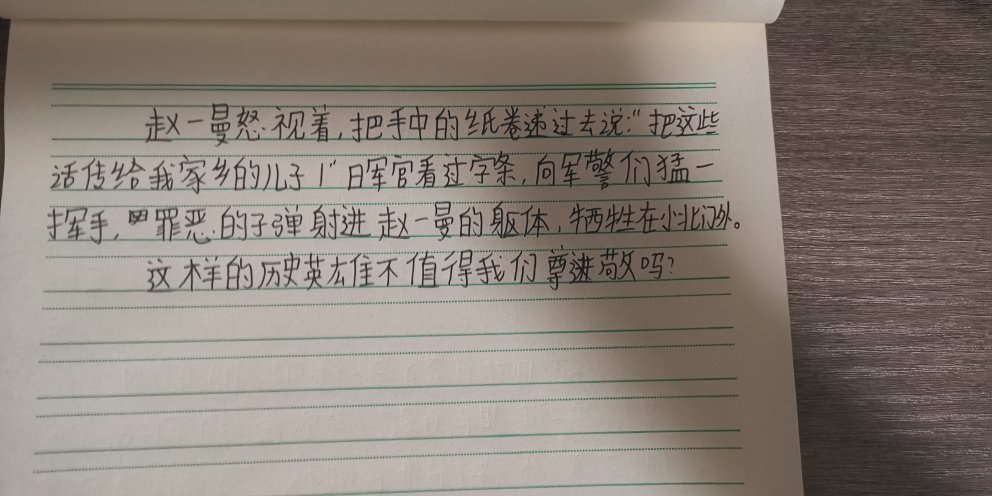 赵一曼怒视着,把手中的纸卷递过去说:“把这些
话传给我家乡的儿子!”日军官看过字条,向军警们猛一
挥手,罪恶的子弹射进赵一曼的躯体,牺牲在小北门外。
这样的历史英雄不值得我们尊敬吗?